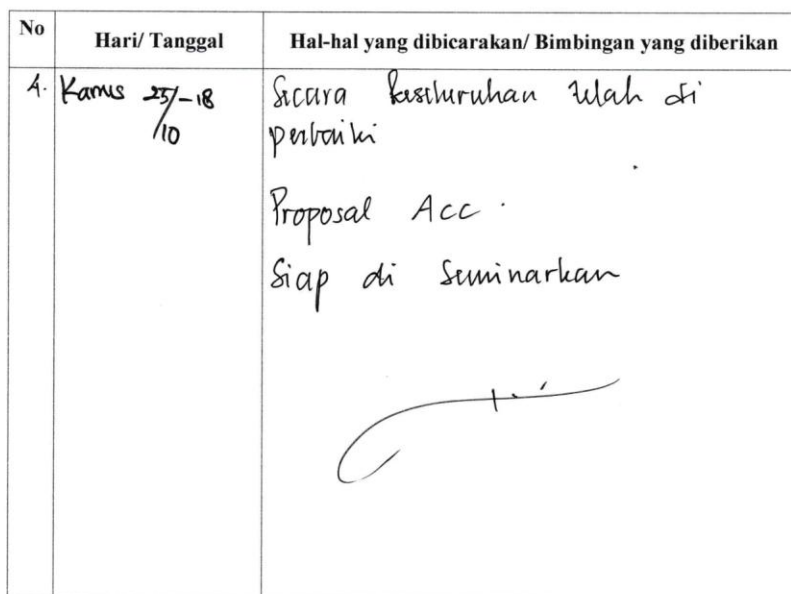 No Hari/ Tanggal Hal-hal yang dibicarakan/ Bimbingan yang diberikan
4. Kamis 25/10-18 Secara keseluruhan telah di
perbaiki
Proposal Acc.
Siap di Seminarkan